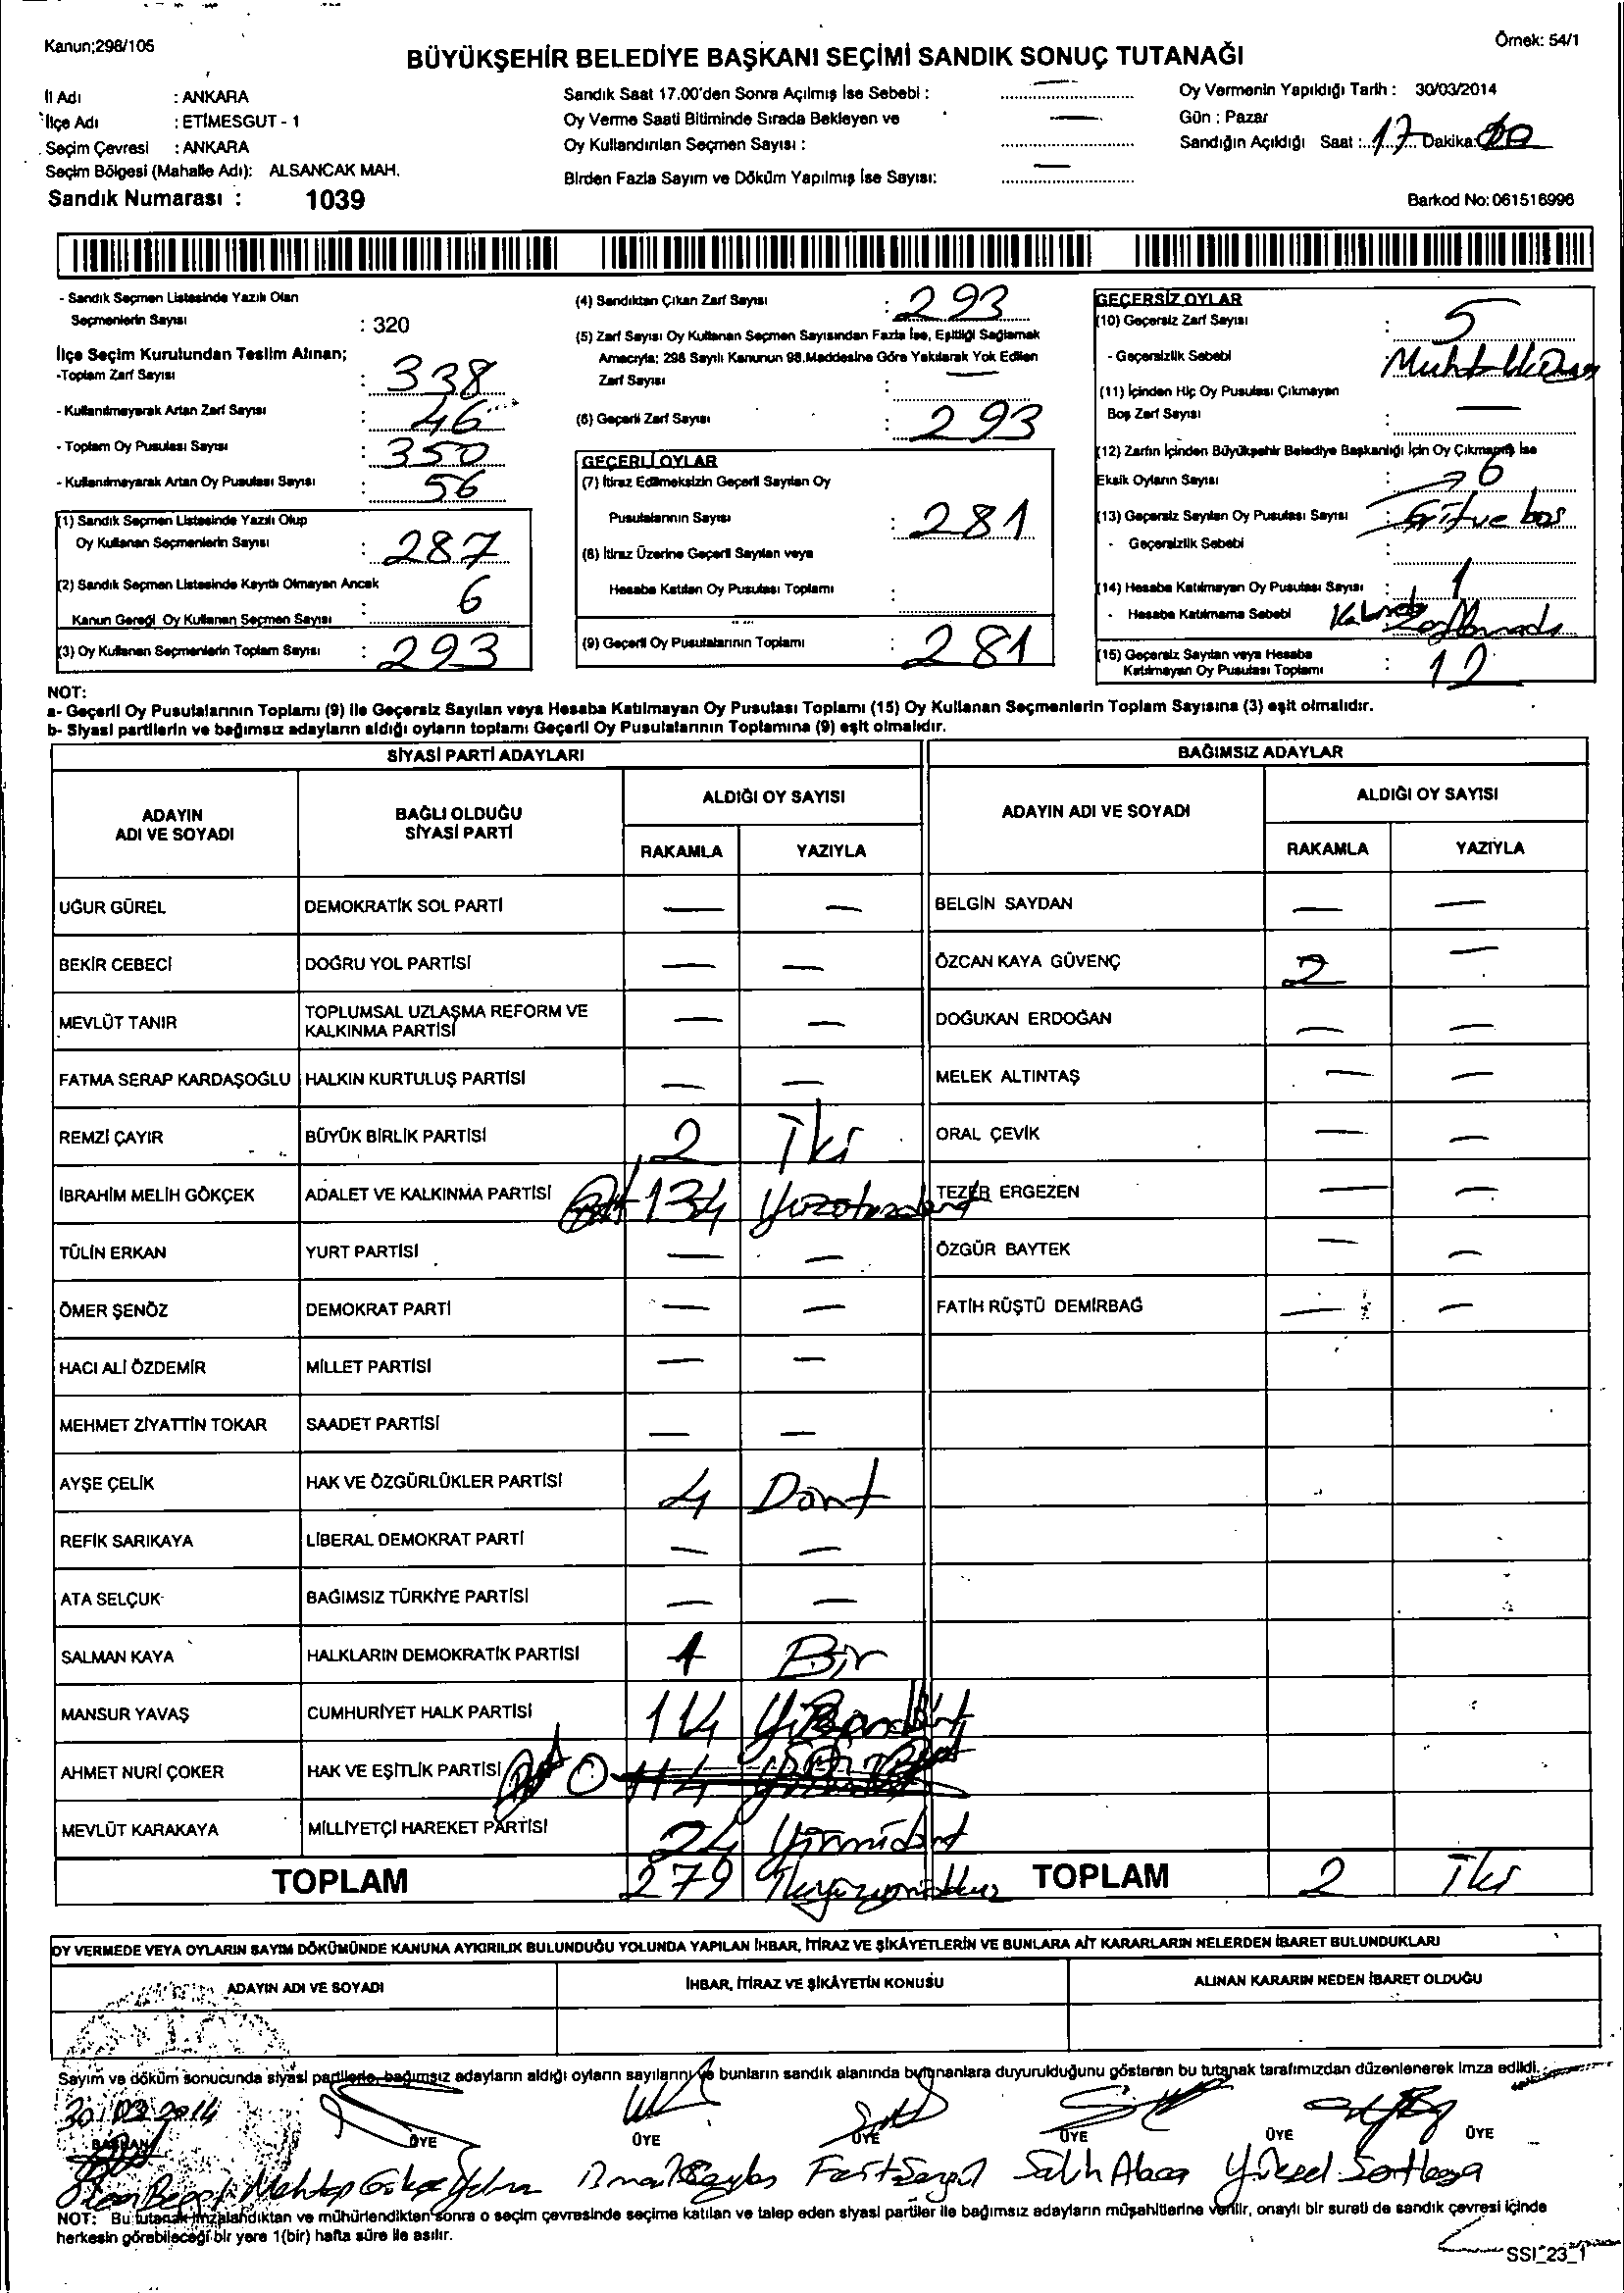 Kanun;298/105
Örnek: 54/1
BÜYÜKŞEHİR BELEDİYE BAŞKANI SEÇİMİ SANDIK SONUÇ TUTANAĞI
İl Adı : ANKARA
İlçe Adı : ETİMESGUT - 1
Seçim Çevresi : ANKARA
Seçim Bölgesi (Mahalle Adı): ALSANCAK MAH.
Sandık Numarası : 1039
Sandık Saat 17.00'den Sonra Açılmış İse Sebebi : —
Oy Verme Saati Bitiminde Sırada Bekleyen ve
Oy Kullandırılan Seçmen Sayısı : —
Birden Fazla Sayım ve Döküm Yapılmış İse Sayısı: —
Oy Vermenin Yapıldığı Tarih : 30/03/2014
Gün : Pazar
Sandığın Açıldığı Saat : 17 Dakika:
Barkod No: 061516996
- Sandık Seçmen Listesinde Yazılı Olan
Seçmenlerin Sayısı : 320
İlçe Seçim Kurulundan Teslim Alınan;
-Toplam Zarf Sayısı : 338
- Kullanılmayarak Artan Zarf Sayısı : 46
- Toplam Oy Pusulası Sayısı : 350
- Kullanılmayarak Artan Oy Pusulası Sayısı : 56
(1) Sandık Seçmen Listesinde Yazılı Olup
Oy Kullanan Seçmenlerin Sayısı : 287
(2) Sandık Seçmen Listesinde Kayıtlı Olmayan Ancak
Kanun Gereği Oy Kullanan Seçmen Sayısı : 6
(3) Oy Kullanan Seçmenlerin Toplam Sayısı : 293
(4) Sandıktan Çıkan Zarf Sayısı : 293
(5) Zarf Sayısı Oy Kullanan Seçmen Sayısından Fazla İse, Eşitliği Sağlamak
Amacıyla; 298 Sayılı Kanunun 98.Maddesine Göre Yakılarak Yok Edilen
Zarf Sayısı : —
(6) Geçerli Zarf Sayısı : 293
GEÇERLİ OYLAR
(7) İtiraz Edilmeksizin Geçerli Sayılan Oy
Pusulalarının Sayısı : 281
(8) İtiraz Üzerine Geçerli Sayılan veya
Hesaba Katılan Oy Pusulası Toplamı :
(9) Geçerli Oy Pusulalarının Toplamı : 281
GEÇERSİZ OYLAR
(10) Geçersiz Zarf Sayısı : 5
- Geçersizlik Sebebi :
(11) İçinden Hiç Oy Pusulası Çıkmayan
Boş Zarf Sayısı : —
(12) Zarfın İçinden Büyükşehir Belediye Başkanlığı İçin Oy Çıkmamış İse
Eksik Oyların Sayısı : 6
(13) Geçersiz Sayılan Oy Pusulası Sayısı :
- Geçersizlik Sebebi :
(14) Hesaba Katılmayan Oy Pusulası Sayısı : 1
- Hesaba Katılmama Sebebi
(15) Geçersiz Sayılan veya Hesaba
Katılmayan Oy Pusulası Toplamı : 12
NOT:
a- Geçerli Oy Pusulalarının Toplamı (9) ile Geçersiz Sayılan veya Hesaba Katılmayan Oy Pusulası Toplamı (15) Oy Kullanan Seçmenlerin Toplam Sayısına (3) eşit olmalıdır.
b- Siyasi partilerin ve bağımsız adayların aldığı oyların toplamı Geçerli Oy Pusulalarının Toplamına (9) eşit olmalıdır.
SİYASİ PARTİ ADAYLARI
ADAYIN
ADI VE SOYADI
BAĞLI OLDUĞU
SİYASİ PARTİ
ALDIĞI OY SAYISI
RAKAMLA YAZIYLA
UĞUR GÜREL DEMOKRATİK SOL PARTİ — —
BEKİR CEBECİ DOĞRU YOL PARTİSİ — —
MEVLÜT TANIR TOPLUMSAL UZLAŞMA REFORM VE
KALKINMA PARTİSİ — —
FATMA SERAP KARDAŞOĞLU HALKIN KURTULUŞ PARTİSİ — —
REMZİ ÇAYIR BÜYÜK BİRLİK PARTİSİ 2 İki
İBRAHİM MELİH GÖKÇEK ADALET VE KALKINMA PARTİSİ 134 Yüzotuzdört
TÜLİN ERKAN YURT PARTİSİ — —
ÖMER ŞENÖZ DEMOKRAT PARTİ — —
HACI ALİ ÖZDEMİR MİLLET PARTİSİ — —
MEHMET ZİYATTİN TOKAR SAADET PARTİSİ — —
AYŞE ÇELİK HAK VE ÖZGÜRLÜKLER PARTİSİ 4 Dört
REFİK SARIKAYA LİBERAL DEMOKRAT PARTİ — —
ATA SELÇUK BAĞIMSIZ TÜRKİYE PARTİSİ — —
SALMAN KAYA HALKLARIN DEMOKRATİK PARTİSİ 1 Bir
MANSUR YAVAŞ CUMHURİYET HALK PARTİSİ 114 Yüzondört
AHMET NURİ ÇOKER HAK VE EŞİTLİK PARTİSİ 0 114
MEVLÜT KARAKAYA MİLLİYETÇİ HAREKET PARTİSİ 24 Yirmidört
TOPLAM 279
BAĞIMSIZ ADAYLAR
ADAYIN ADI VE SOYADI
ALDIĞI OY SAYISI
RAKAMLA YAZIYLA
BELGİN SAYDAN — —
ÖZCAN KAYA GÜVENÇ 2 —
DOĞUKAN ERDOĞAN — —
MELEK ALTINTAŞ — —
ORAL ÇEVİK — —
TEZER ERGEZEN — —
ÖZGÜR BAYTEK — —
FATİH RÜŞTÜ DEMİRBAĞ — —
TOPLAM 2 İki
OY VERMEDE VEYA OYLARIN SAYIM DÖKÜMÜNDE KANUNA AYKIRILIK BULUNDUĞU YOLUNDA YAPILAN İHBAR, İTİRAZ VE ŞİKÂYETLERİN VE BUNLARA AİT KARARLARIN NELERDEN İBARET BULUNDUKLARI
ADAYIN ADI VE SOYADI
İHBAR, İTİRAZ VE ŞİKÂYETİN KONUSU
ALINAN KARARIN NEDEN İBARET OLDUĞU
Sayım ve döküm sonucunda siyasi partilerle, bağımsız adayların aldığı oyların sayılarını ve bunların sandık alanında bulunanlara duyurulduğunu gösteren bu tutanak tarafımızdan düzenlenerek imza edildi.
30/03/2014
BAŞKAN ÜYE ÜYE ÜYE ÜYE ÜYE ÜYE
NOT: Bu tutanak imzalandıktan ve mühürlendikten sonra o seçim çevresinde seçime katılan ve talep eden siyasi partiler ile bağımsız adayların müşahitlerine verilir, onaylı bir sureti de sandık çevresi içinde
herkesin görebileceği bir yere 1(bir) hafta süre ile asılır.
SSI_23_1